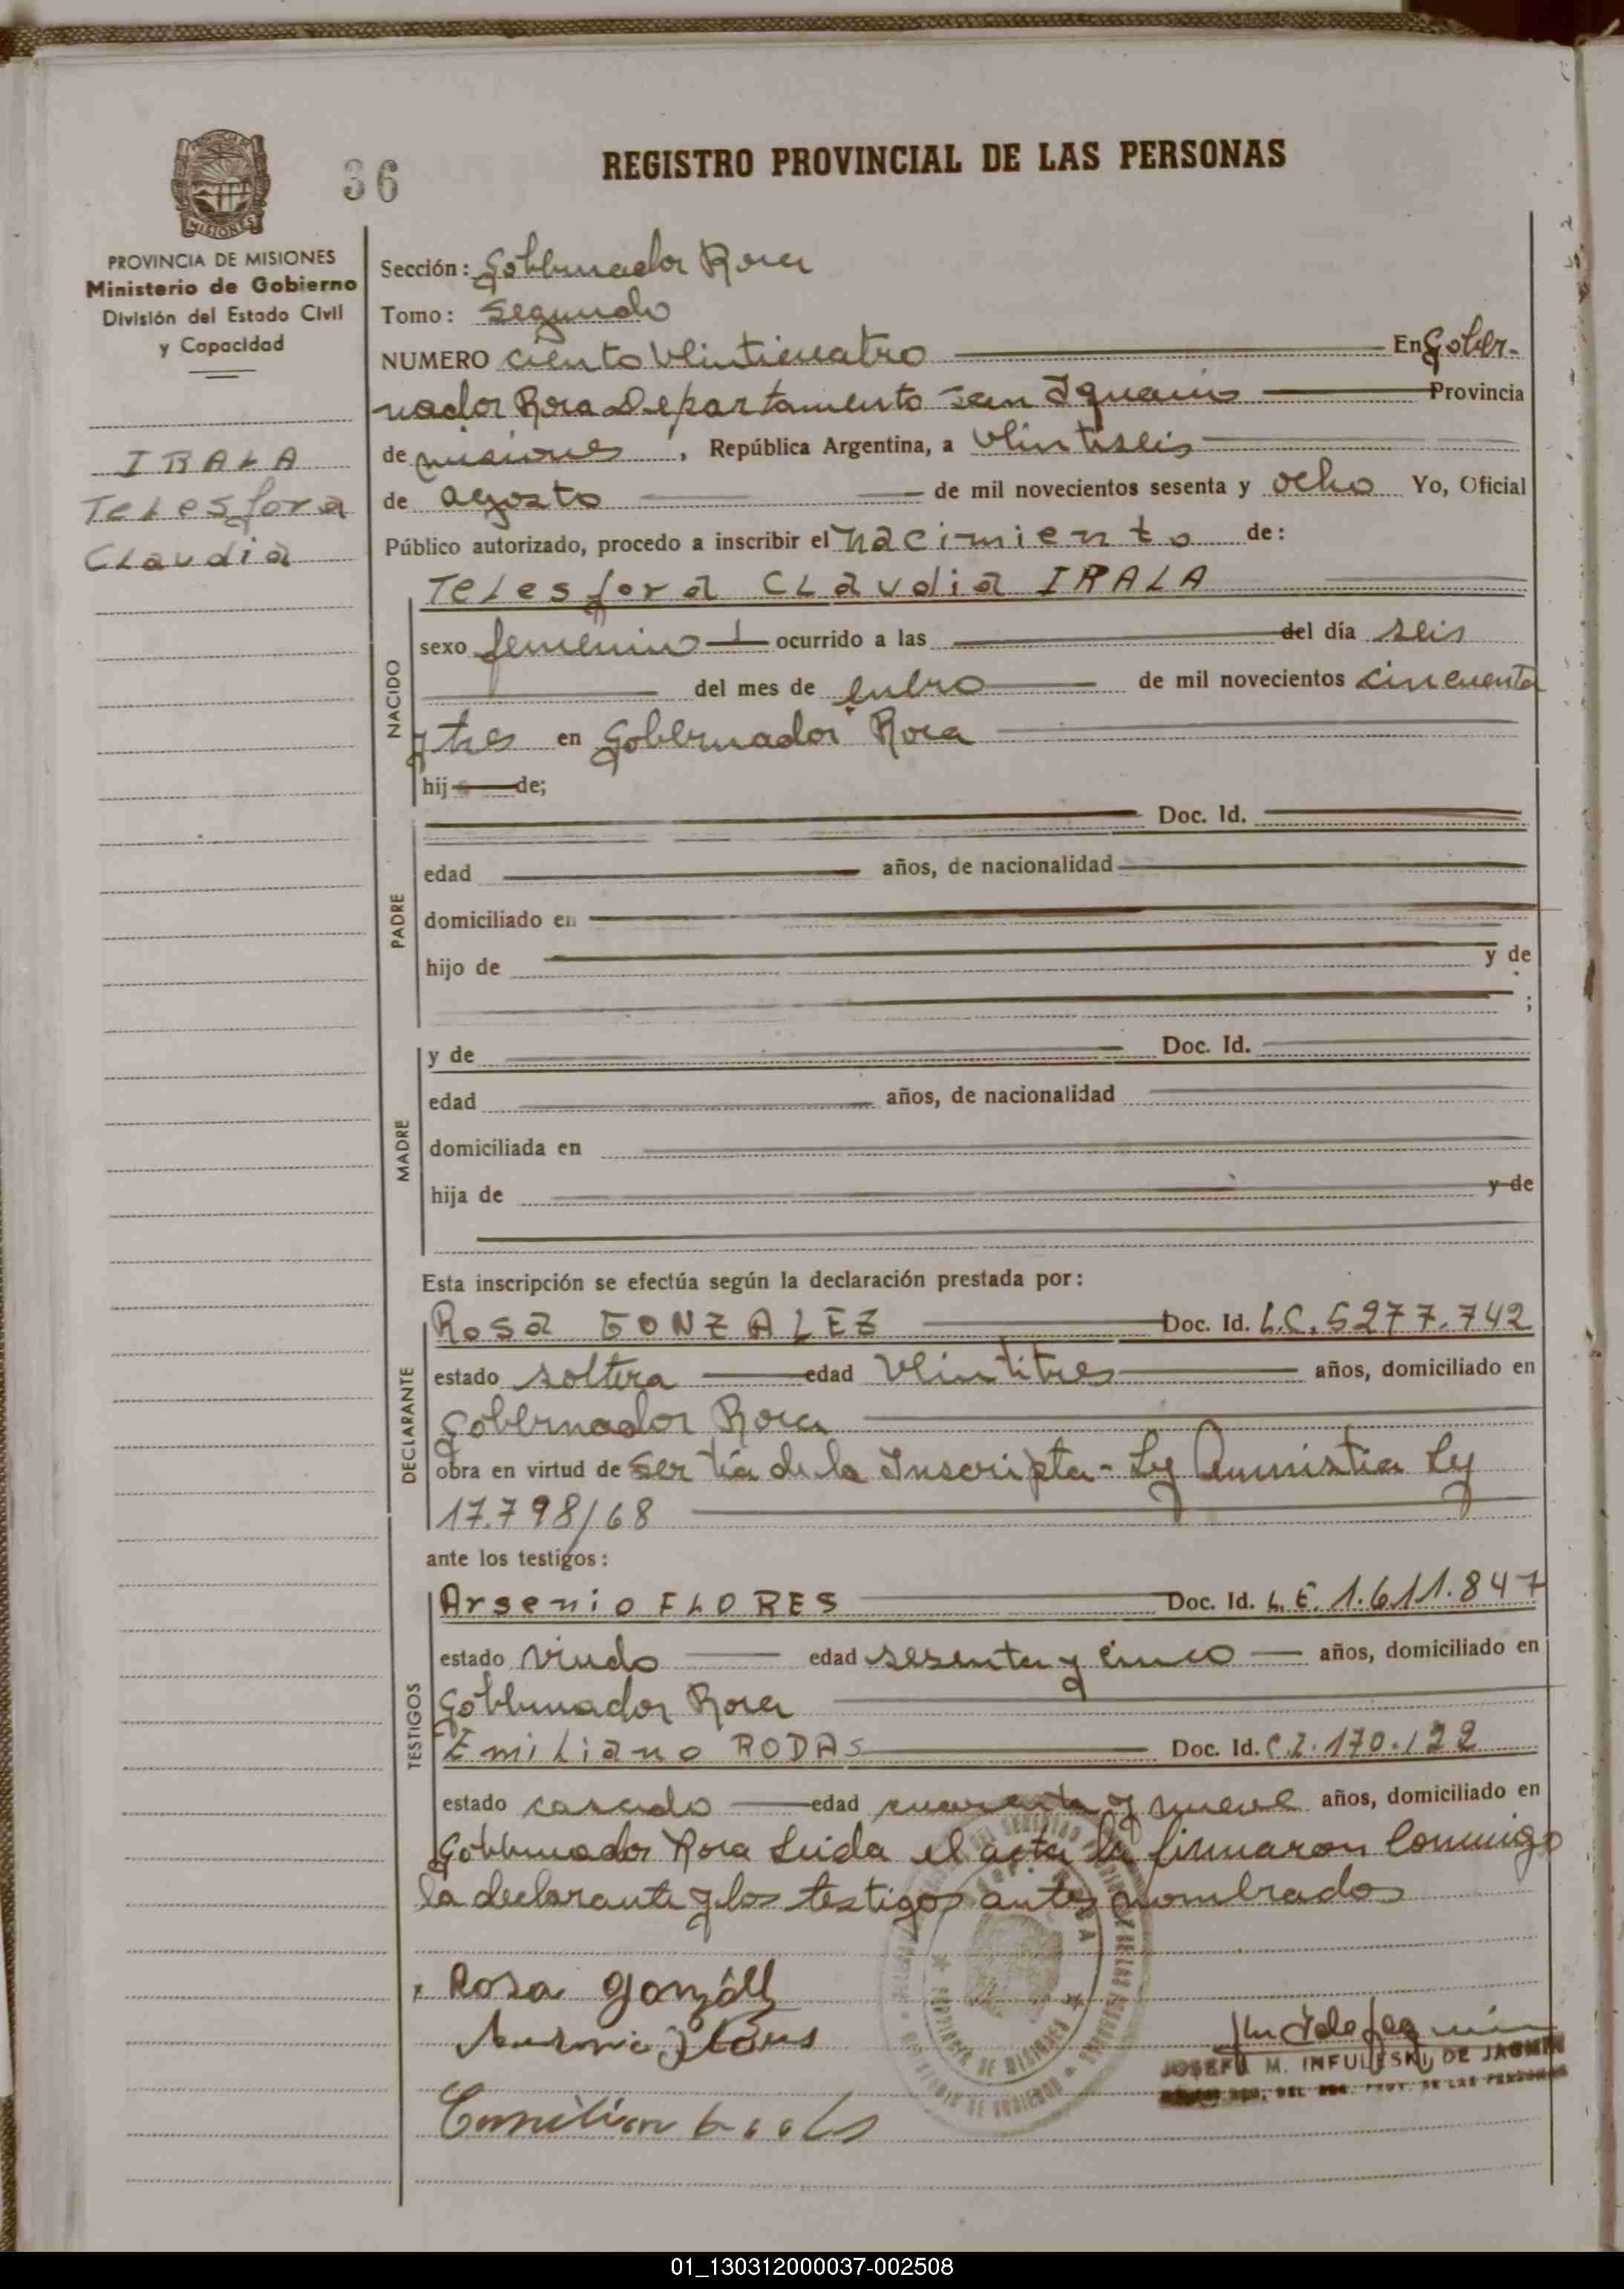 36
REGISTRO PROVINCIAL DE LAS PERSONAS
MISIONES
PROVINCIA DE MISIONES
Ministerio de Gobierno
División del Estado Civil
y Capacidad
IRALA
Telesfora
Claudia
Sección: Gobernador Roca
Tomo: Segundo
NUMERO ciento veinticuatro En Gober-
nador Roca Departamento San Ignacio Provincia
de misiones, República Argentina, a veintiseis
de agosto de mil novecientos sesenta y ocho Yo, Oficial
Público autorizado, procedo a inscribir el nacimiento de:
Telesfora Claudia IRALA
NACIDO
sexo femenino ocurrido a las del día seis
del mes de enero de mil novecientos cincuenta
y tres en Gobernador Roca
hij de;
PADRE
Doc. Id.
edad años, de nacionalidad
domiciliado en
hijo de y de
;
MADRE
y de Doc. Id.
edad años, de nacionalidad
domiciliada en
hija de y de
Esta inscripción se efectúa según la declaración prestada por:
DECLARANTE
Rosa GONZALEZ Doc. Id. L.C. 5277.742
estado soltera edad veintitres años, domiciliado en
Gobernador Roca
obra en virtud de ser tía de la Inscripta - Ley Amnistia Ley
17.798/68
ante los testigos:
TESTIGOS
Arsenio FLORES Doc. Id. L.E. 1.611.847
estado viudo edad sesenta y cinco años, domiciliado en
Gobernador Roca
Emiliano RODAS Doc. Id. C.I. 170.122
estado casado edad cuarenta y nueve años, domiciliado en
Gobernador Roca Leida el acta la firmaron conmigo
la declarante y los testigos antes nombrados
Rosa Gonzálz
PROVINCIA DE MISIONES
JOSEFA M. INFULESKI DE JAGMIN
01_130312000037-002508